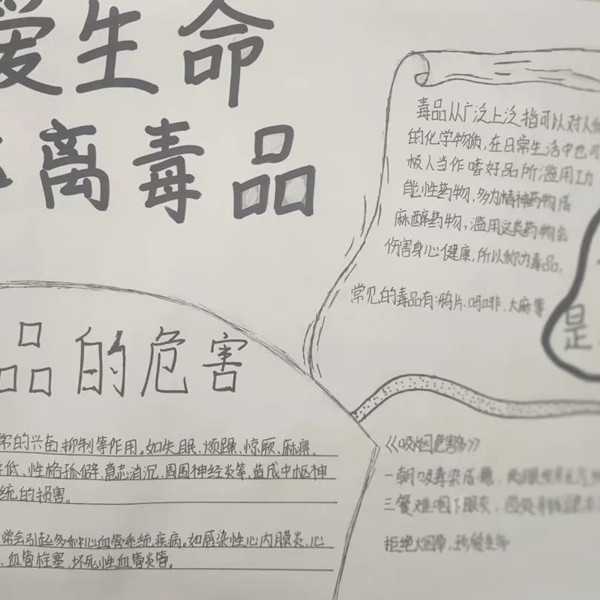 爱生命
离毒品
毒品从广泛上泛指可以对人
的化学物质,在日常生活中也可
被人当作嗜好品所滥用功
能性药物,多为精神药物后
麻醉药物,滥用这类药物会
伤害身心健康,所以称为毒品。
常见的毒品有:鸦片、吗啡、大麻等
是
品的危害
常的兴奋抑制等作用。如失眠、烦躁、惊厥、麻痹、
低、性格孤僻、意志消沉、周围神经炎等,造成中枢神
统的损害。
常会引起多种心血管系统疾病。如感染性心内膜炎、心
、血管栓塞、坏死性血管炎等。
一朝吸毒染
三餐难咽下眼